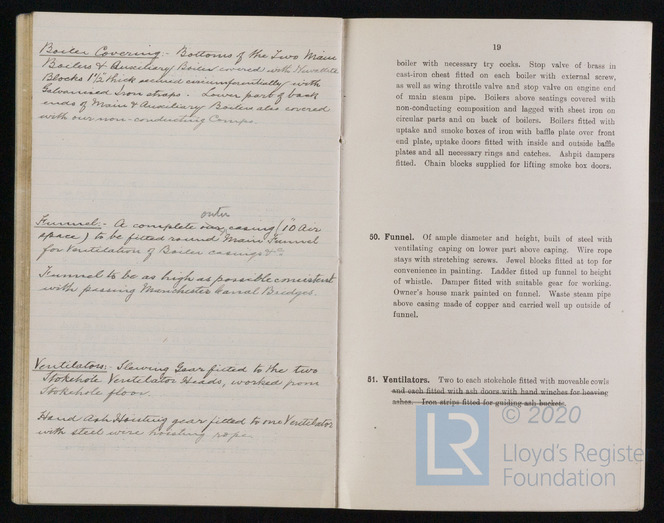 Boiler Covering.- Bottoms of the Two Main
Boilers & Auxiliary Boiler covered with
Blocks 1½" thick secured circumferentially with
Galvanised Iron straps. Lower part of back
ends of Main & Auxiliary Boilers also covered
with our non-conducting Compo.
outer
Funnel:- A complete casing (10" Air
space) to be fitted round Main Funnel
for Ventilation of Boiler casings &c
Funnel to be as high as possible consistent
with passing Manchester Canal Bridges.
Ventilators:- Slewing Gear fitted to the two
Stokehole Ventilator Heads, worked from
Stokehole floor.
Hand Ash Hoisting gear fitted to one Ventilator
with steel wire hoisting rope
19
boiler with necessary try cocks. Stop valve of brass in
cast-iron chest fitted on each boiler with external screw,
as well as wing throttle valve and stop valve on engine end
of main steam pipe. Boilers above seatings covered with
non-conducting composition and lagged with sheet iron on
circular parts and on back of boilers. Boilers fitted with
uptake and smoke boxes of iron with baffle plate over front
end plate, uptake doors fitted with inside and outside baffle
plates and all necessary rings and catches. Ashpit dampers
fitted. Chain blocks supplied for lifting smoke box doors.
50. Funnel. Of ample diameter and height, built of steel with
ventilating caping on lower part above caping. Wire rope
stays with stretching screws. Jewel blocks fitted at top for
convenience in painting. Ladder fitted up funnel to height
of whistle. Damper fitted with suitable gear for working.
Owner's house mark painted on funnel. Waste steam pipe
above casing made of copper and carried well up outside of
funnel.
51. Ventilators. Two to each stokehole fitted with moveable cowls
and each fitted with ash doors with hand winches for heaving
ashes. Iron strips fitted for guiding ash bucket.
© 2020
LR
Lloyd's Register
Foundation